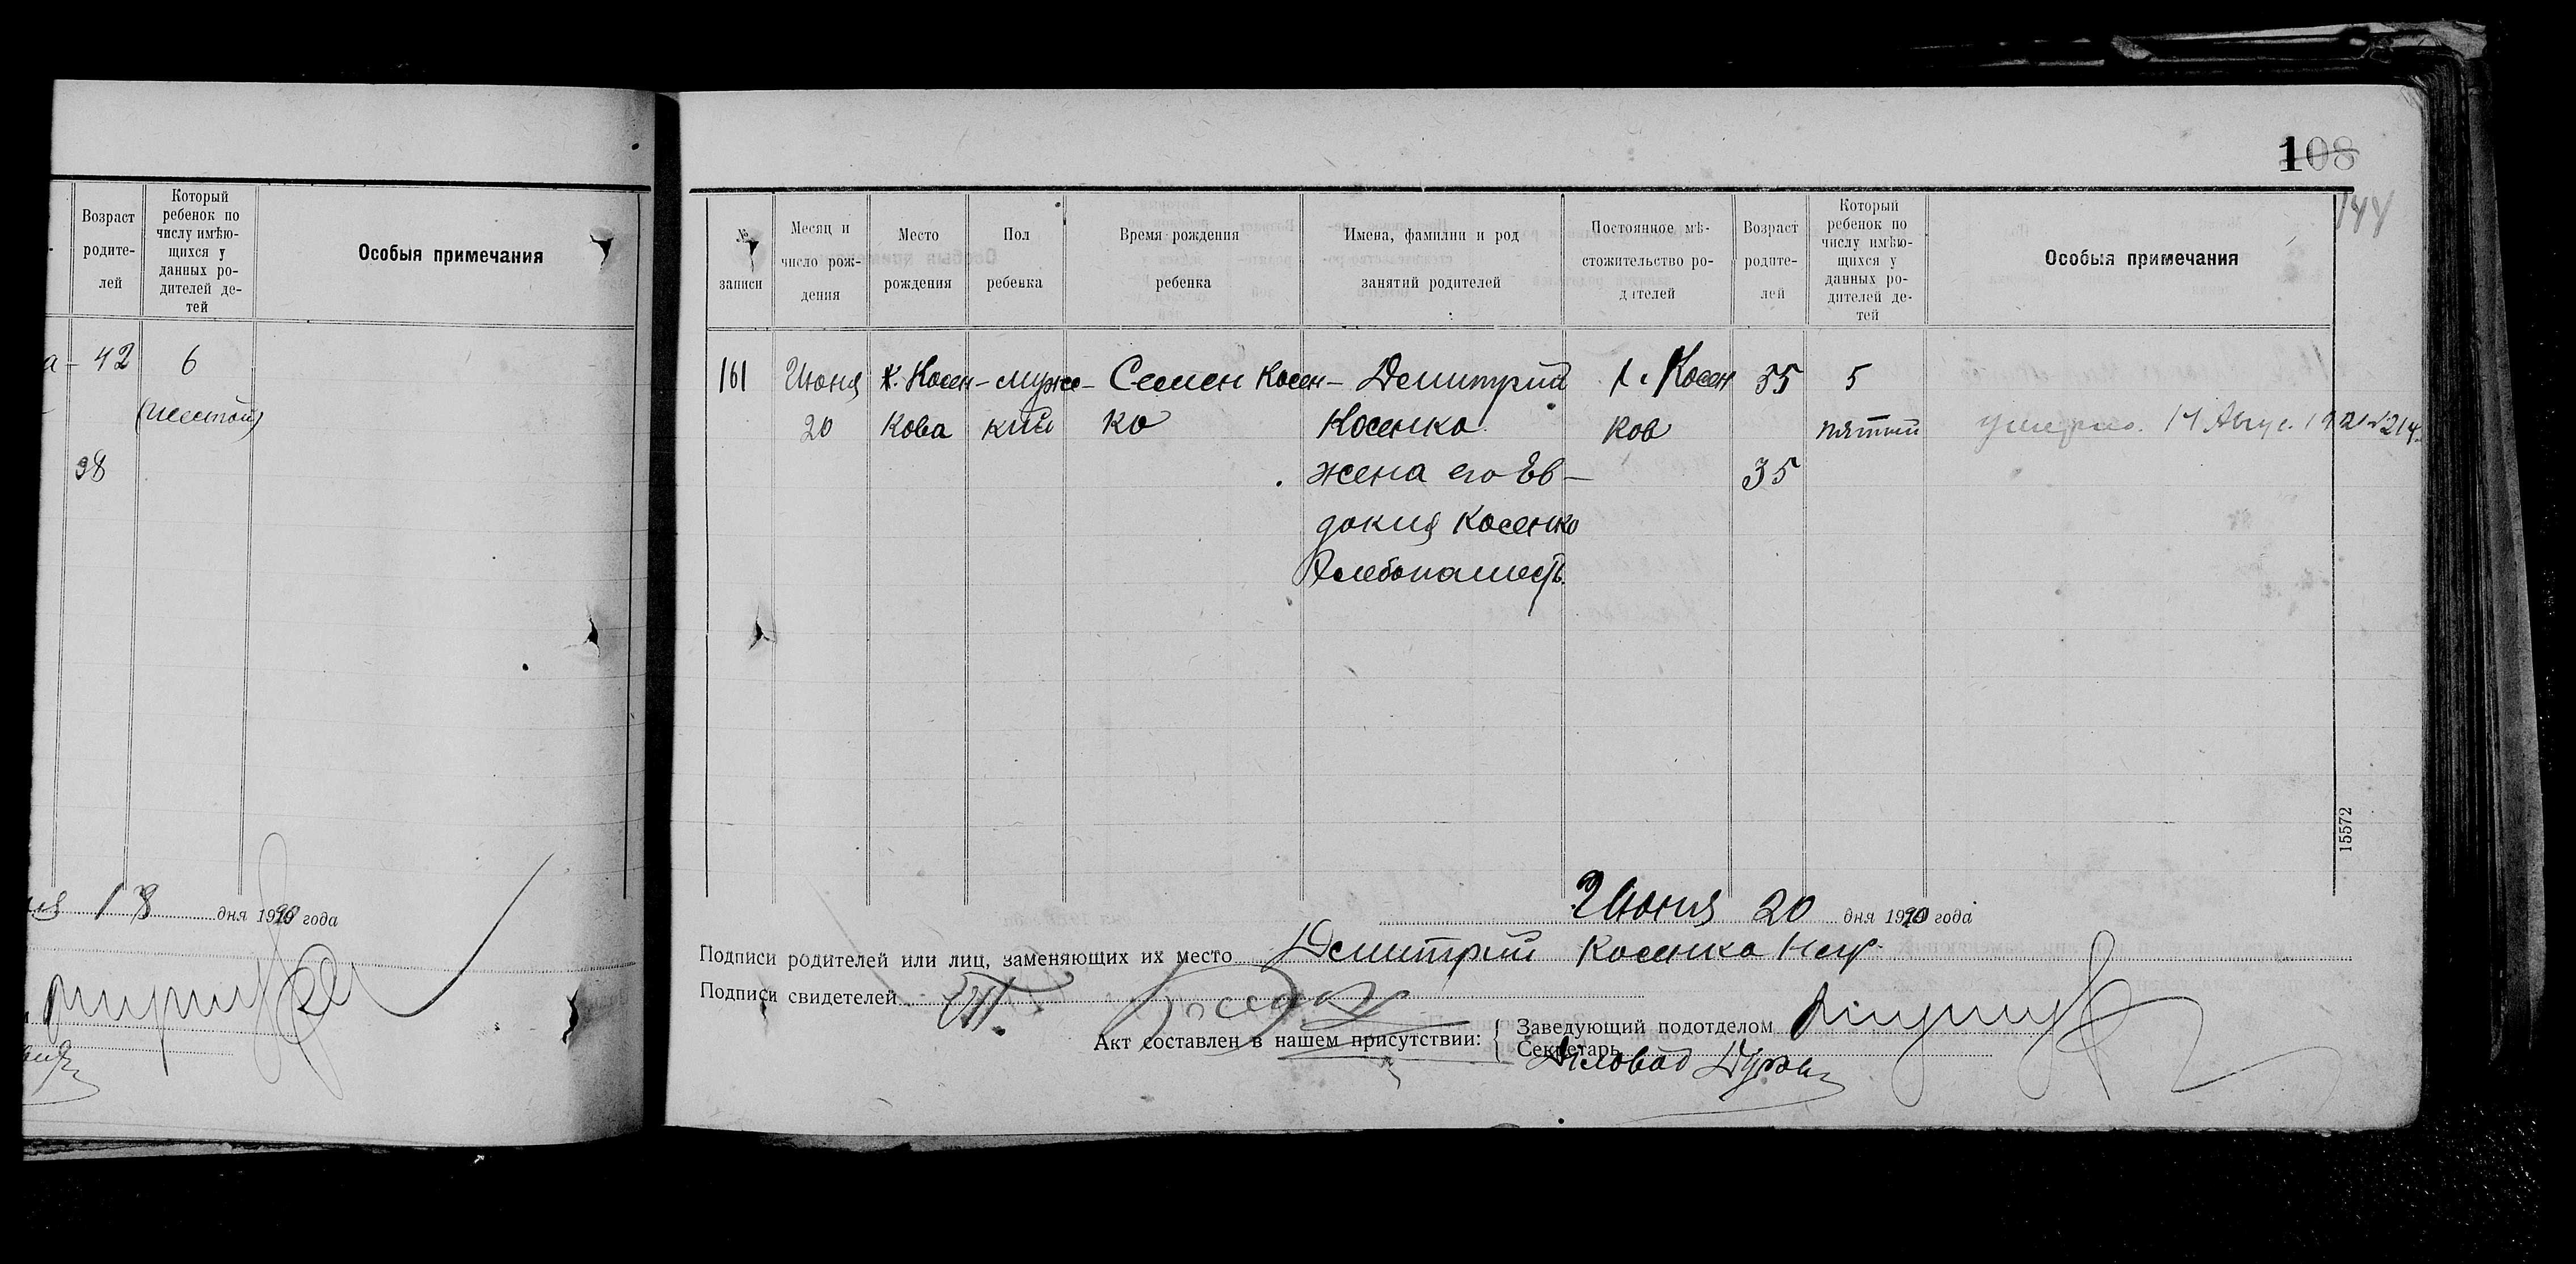 Возраст
родите-
лей
Который
ребенок по
числу имѣю-
щихся у
данных ро-
дителей де-
тей
Особыя примечания
а- 42 6
(шестой)
38
18 дня 1920 года
108
144
№
записи
Месяц и
число рож-
дения
Место
рождения
Пол
ребенка
Время рождения
ребенка
Имена, фамилии и род
занятий родителей
Постоянное мѣ-
стожительство ро-
дителей
Возраст
родите-
лей
Который
ребенок по
числу имѣю-
щихся у
данных ро-
дителей де-
тей
Особыя примечания
161 Июня х. Косен- мужс- Семен Косен- Демитрий х. Косен 55 5
20 кова кий ко Косенко ков пятый умерло. 14 Авгус. 1921 №214
жена его Ев- 35
докия Косенко
Хлебопашест.
15572
Июня 20 дня 1920 года
Подписи родителей или лиц, заменяющих их место Демитрий Косенко Негр.
Подписи свидетелей
Акт составлен в нашем присутствии:
Заведующий подотделом
Секретарь
Деловод